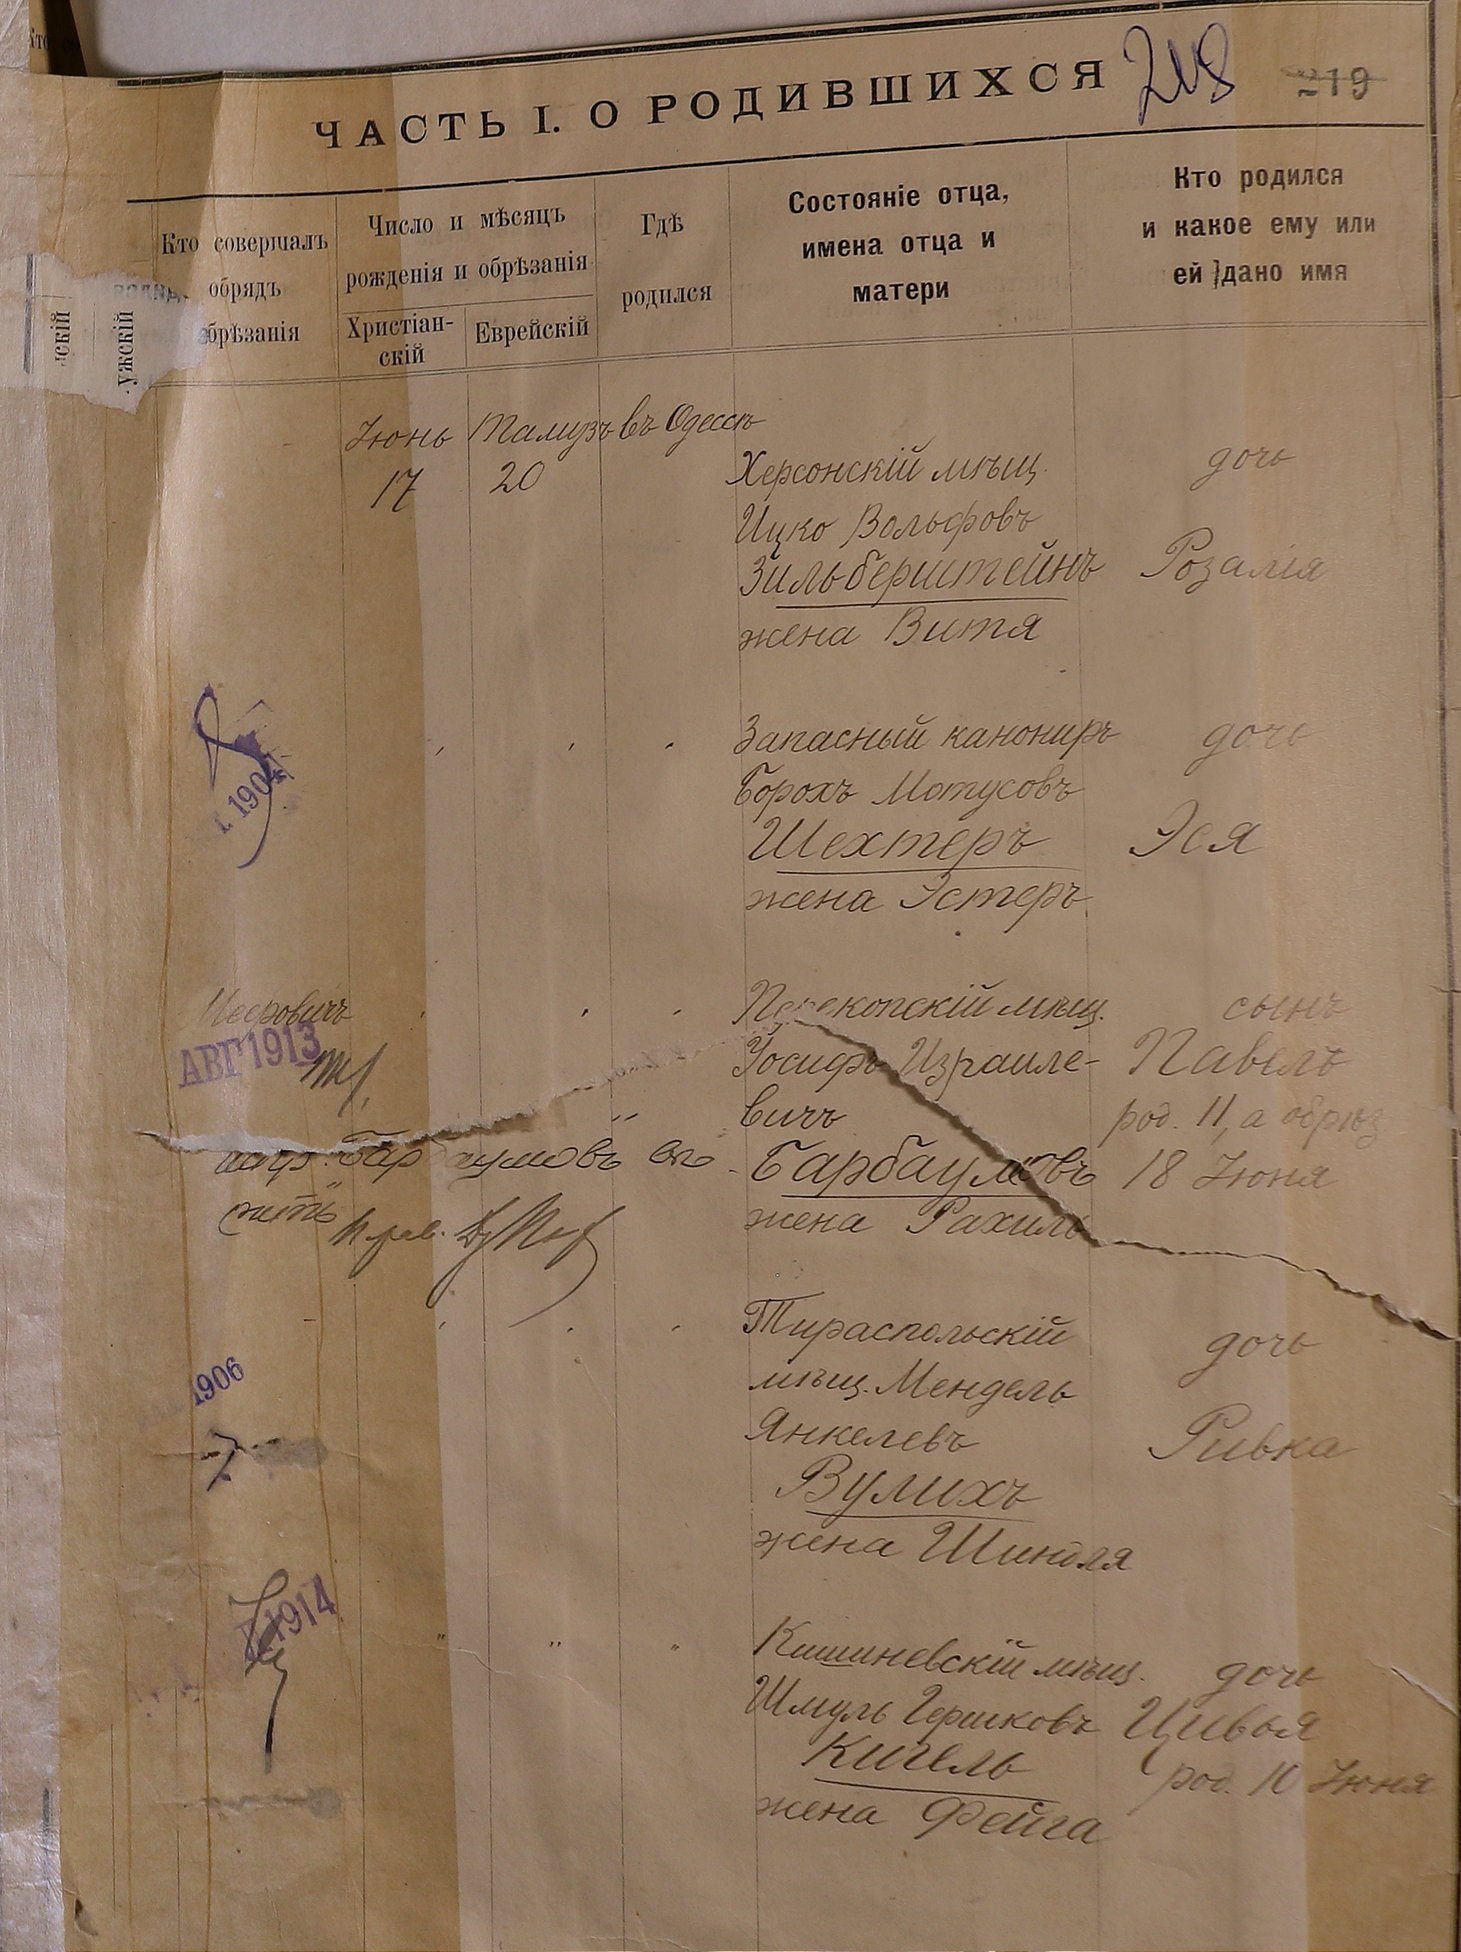 ЧАСТЬ I. О РОДИВШИХСЯ 218 219
Кто совершалъ
обрядъ
обрѣзанія
Число и мѣсяцъ
рожденія и обрѣзанія
Христіан-
скій
Еврейскій
Гдѣ
родился
Состояніе отца,
имена отца и
матери
Кто родился
и какое ему или
ей дано имя
ужскій
Іюнь Тамузъ въ Одессѣ
17 20
Херсонскій мѣщ. дочь
Ицко Вольфовъ
Зильберштейнъ Розалія
жена Витя
Запасный канониръ дочь
Борохъ Мотусовъ
1904
Шехтеръ Эся
жена Эстеръ
Мееровичъ Перекопскій мѣщ. сынъ
АВГ 1913
Іосифъ Израиле- Павелъ
вичъ род. 11, а обрѣз
Барбаумовъ 18 Іюня
жена Рахиль
Тираспольскій дочь
мѣщ. Мендель
1906
Янкелевъ Ривка
Вулихъ
жена Шиндля
1914
Кишиневскій мѣщ. дочь
Шмуль Гершковъ Цивья
Кигель род. 10 Іюня
жена Фейга